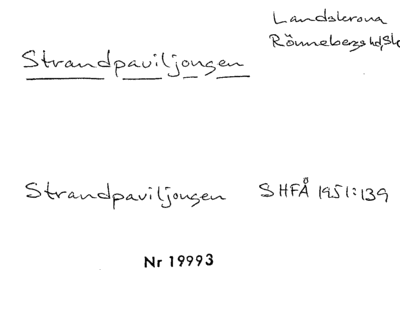 Landskrona
Rönnebergs hd, Sk
Strandpaviljongen
Strandpaviljongen SHFÅ 1951:139
Nr 19993